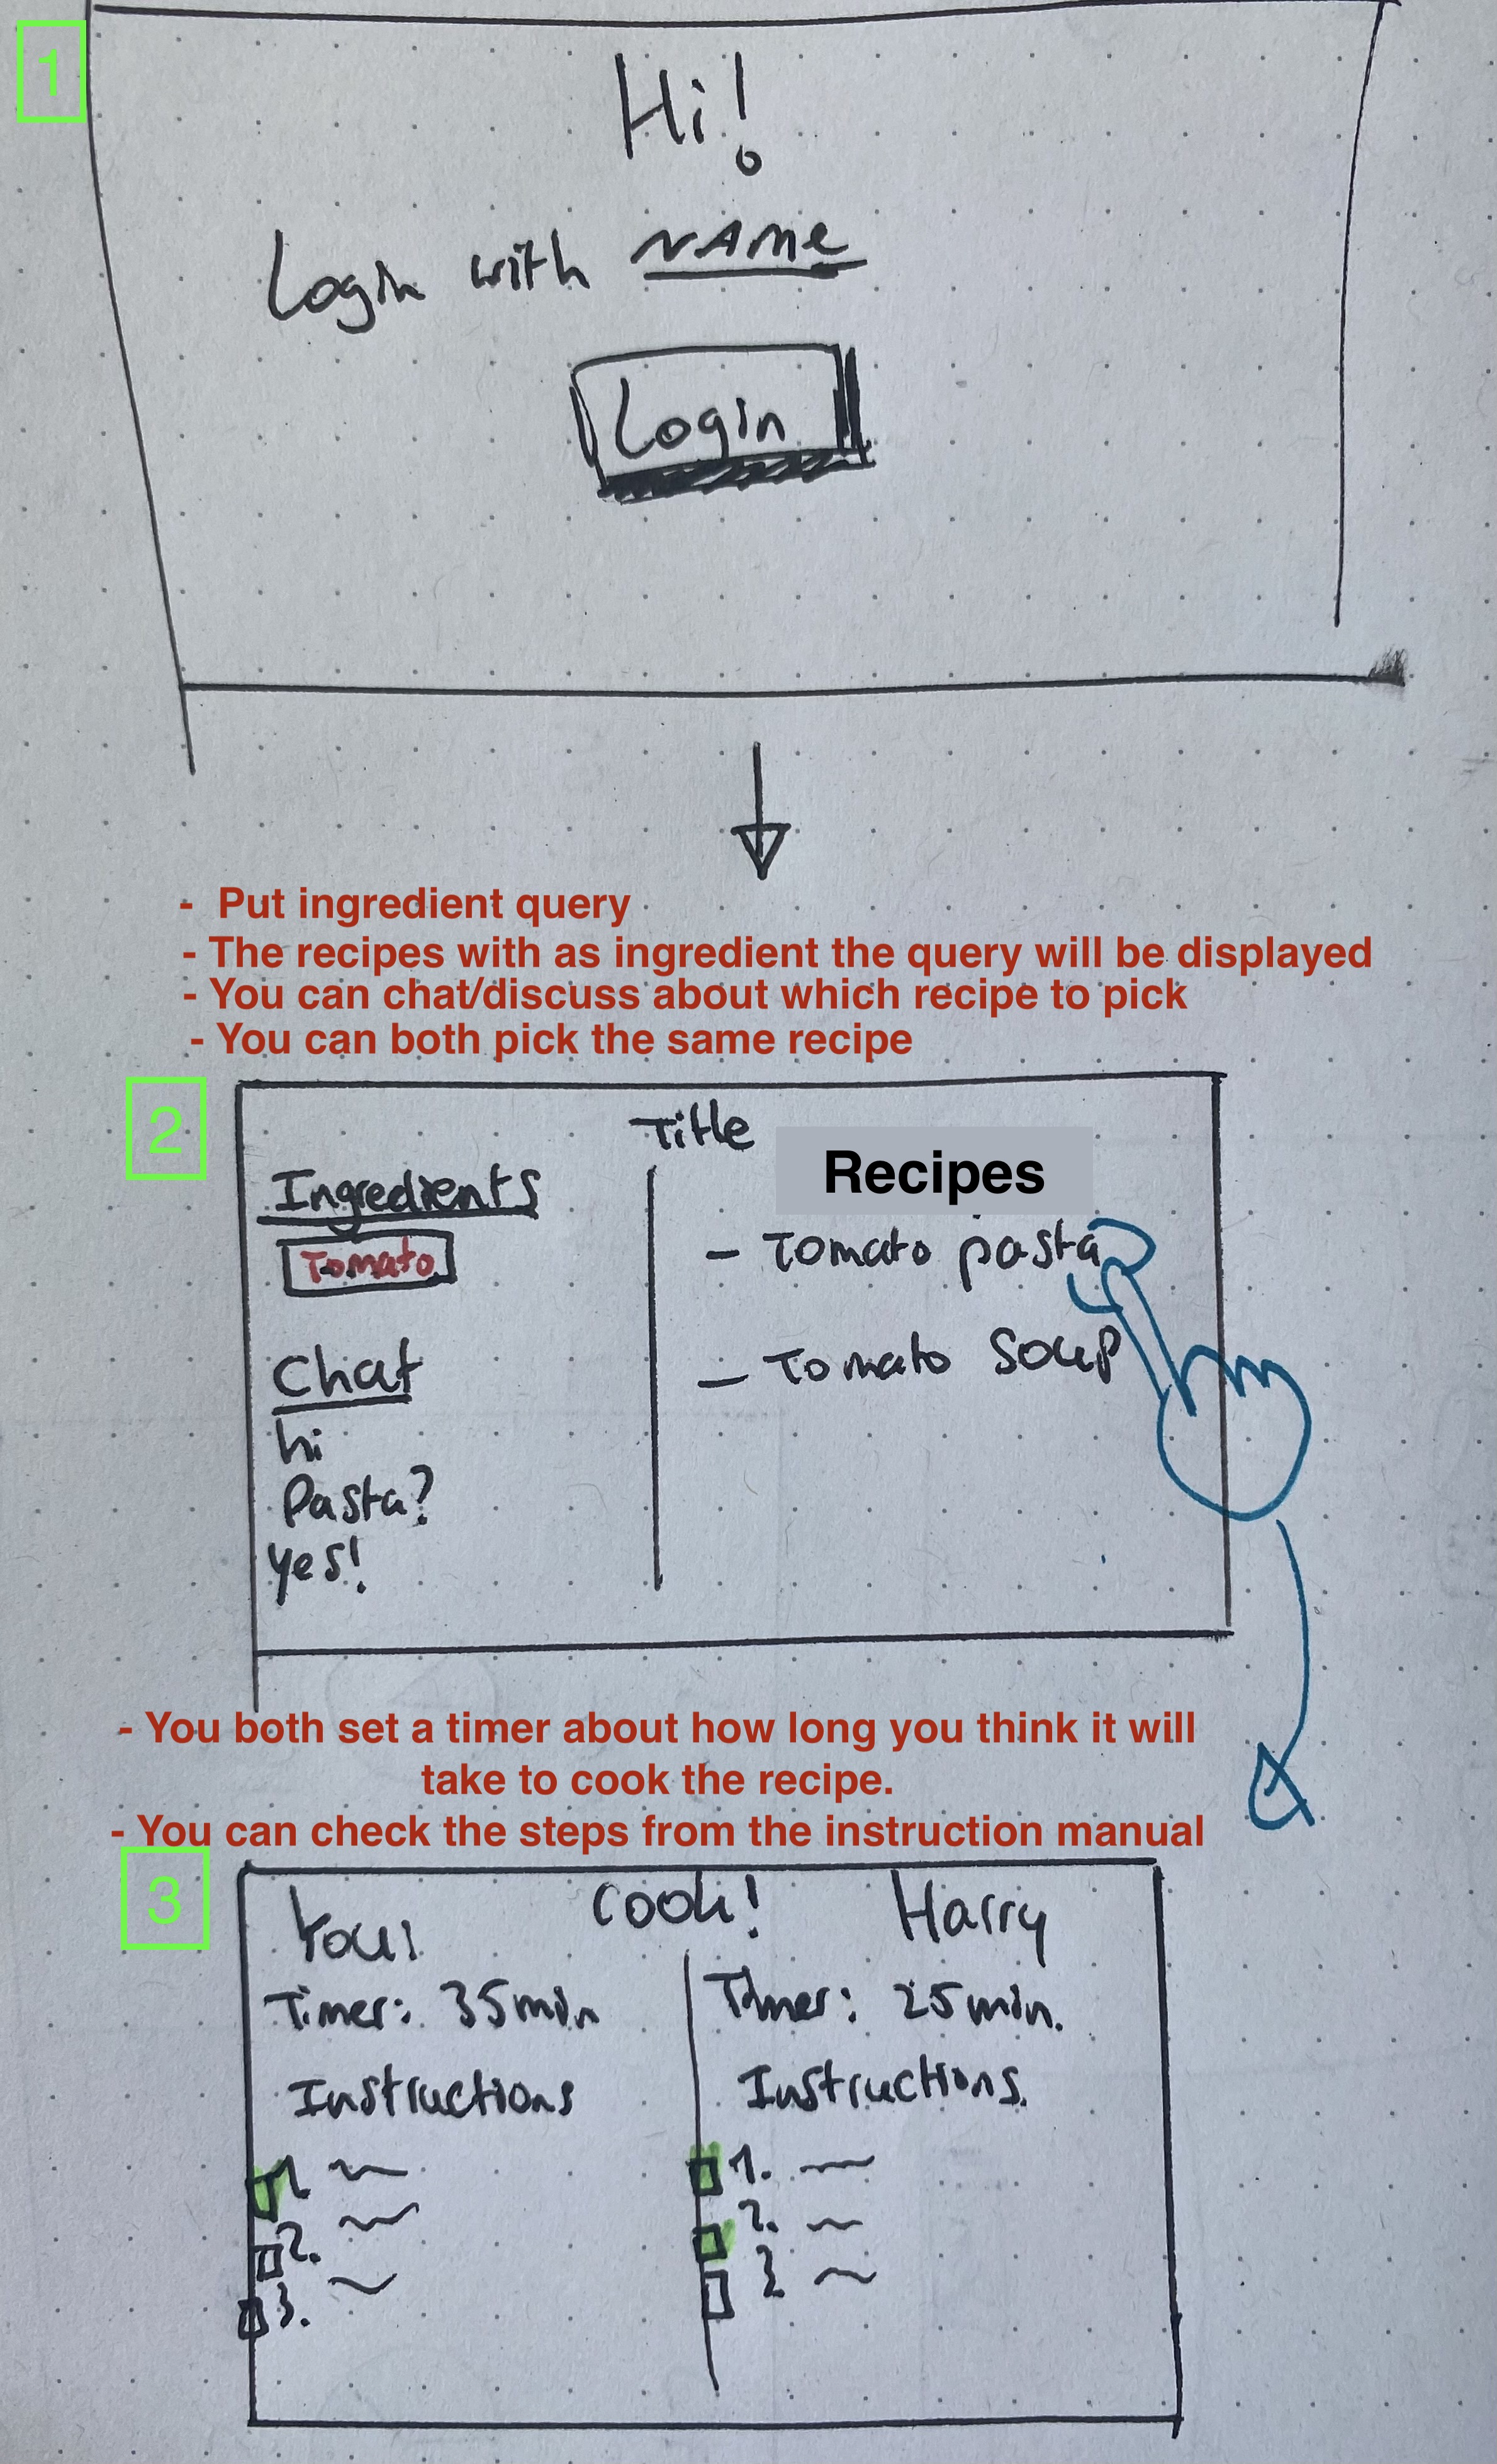 1
Hi!
Login with NAMe
Login
- Put ingredient query
- The recipes with as ingredient the query will be displayed
- You can chat/discuss about which recipe to pick
- You can both pick the same recipe
2
Title
Ingredients
Tomato
Chat
hi
Pasta?
yes!
Recipes
- Tomato pasta
- Tomato soup
- You both set a timer about how long you think it will
take to cook the recipe.
- You can check the steps from the instruction manual
3
Cook!
You:
Timer: 35min
Instructions
1.
2.
3.
Harry
Timer: 25min.
Instructions.
1.
2.
3